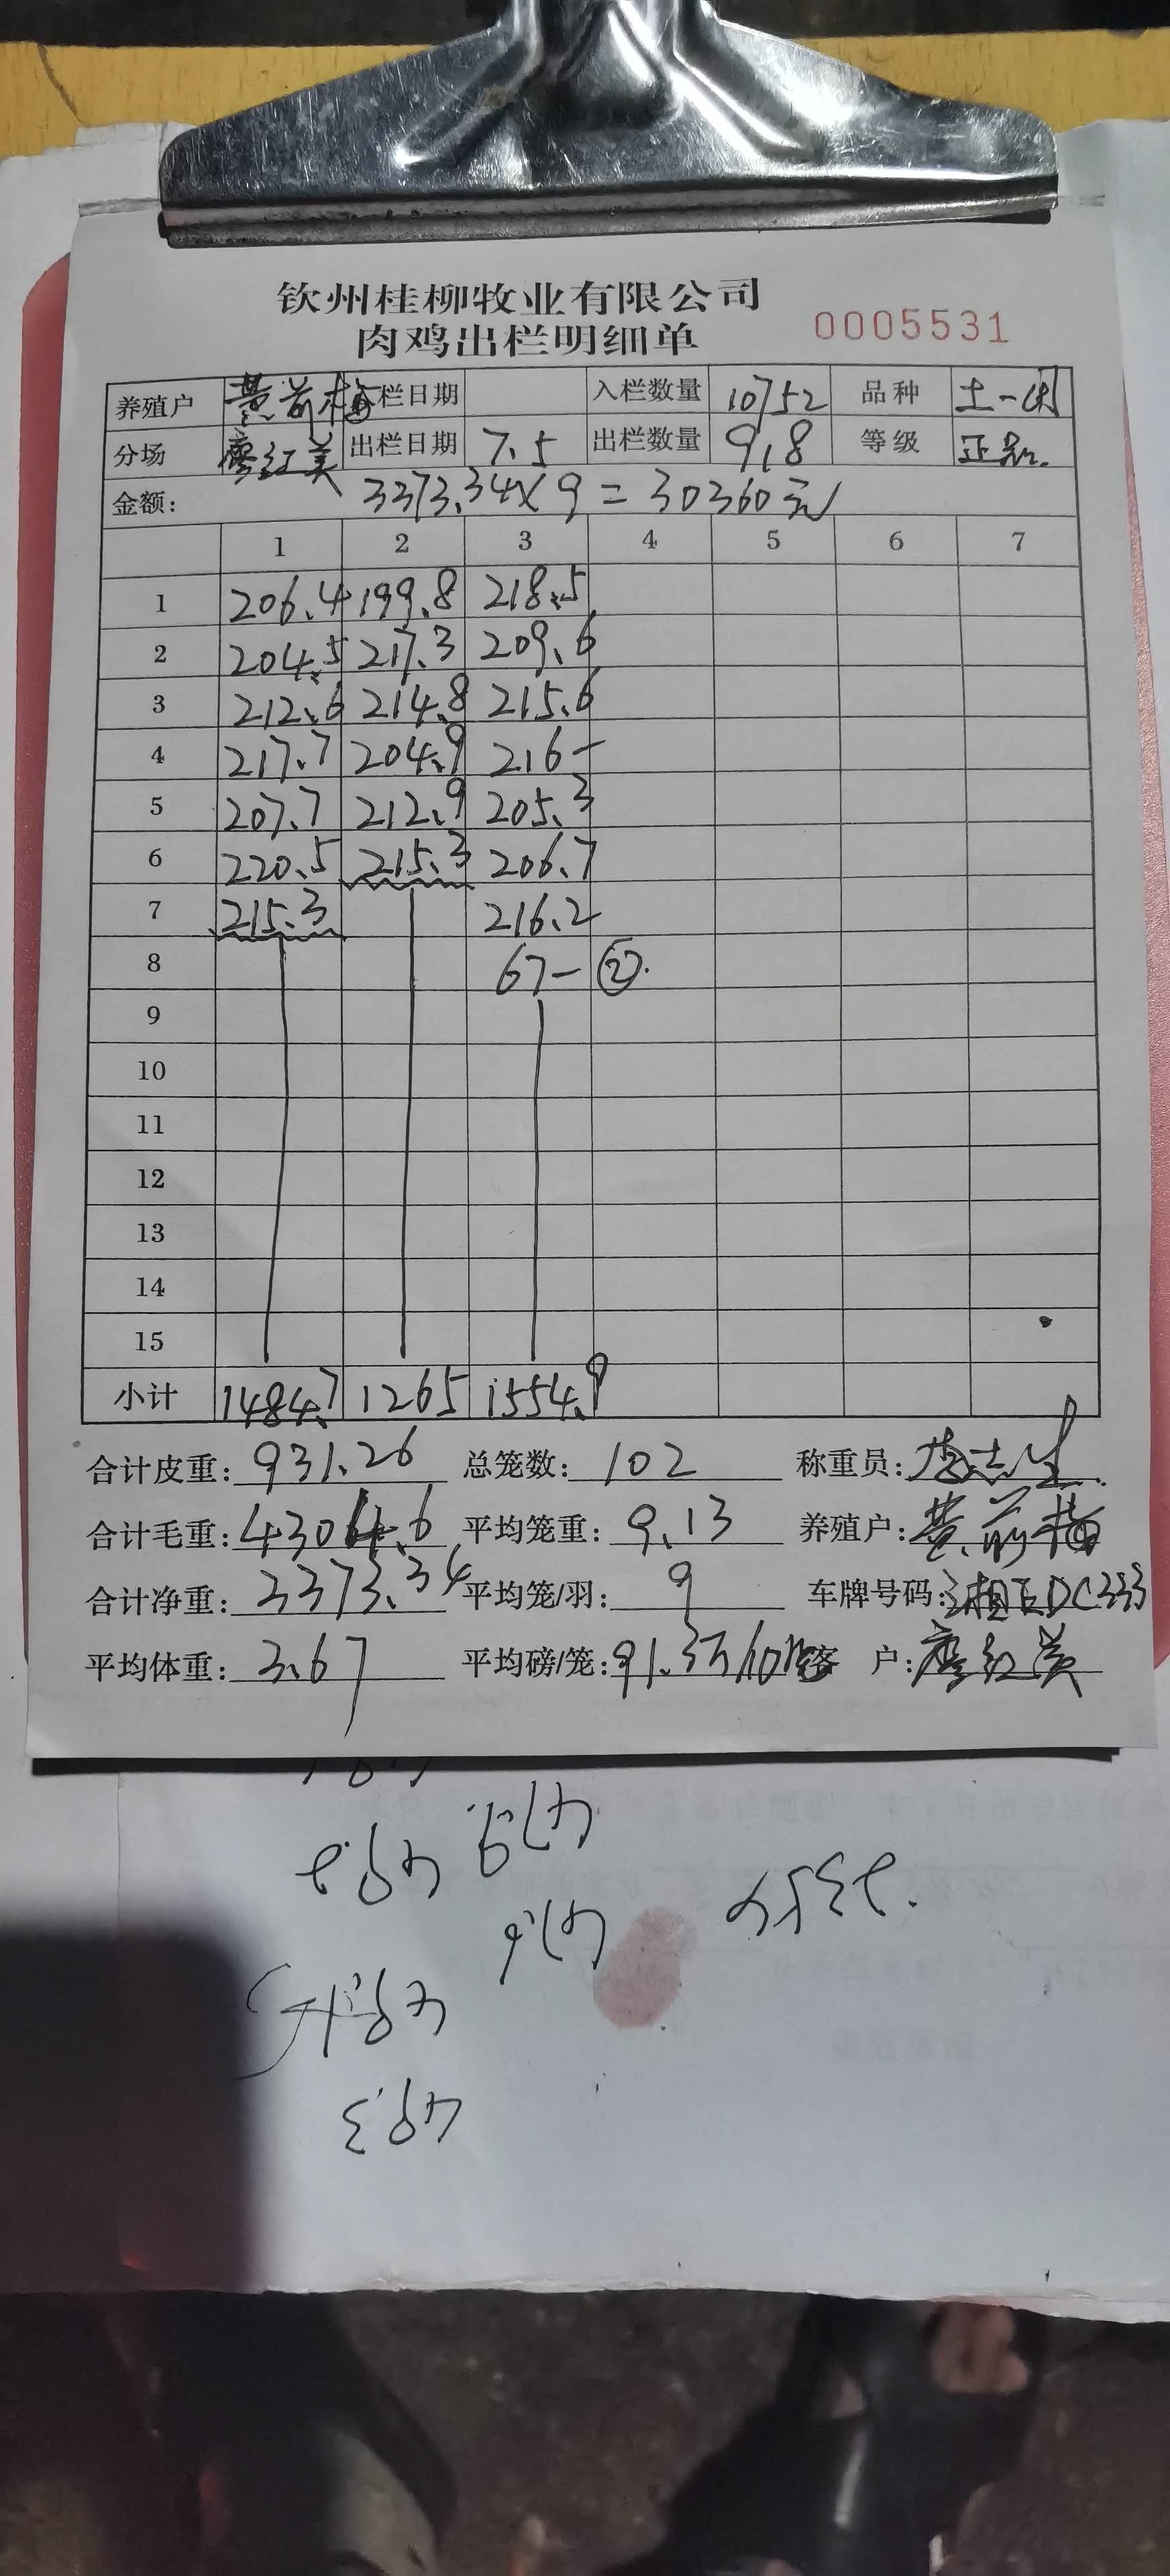 钦州桂柳牧业有限公司
肉鸡出栏明细单 0005531
养殖户 黄前梅 栏日期 入栏数量 10752 品种
分场 廖红美 出栏日期 7.5 出栏数量 918 等级 正品
金额: 3373.34×9=30360元
1 2 3 4 5 6 7
1 206.4 199.8 218.5
2 204.5 217.3 209.6
3 212.6 214.8 215.6
4 217.7 204.9 216-
5 207.7 212.9 205.3
6 220.5 215.3 206.7
7 215.3 216.2
8 67- ②
9
10
11
12
13
14
15
小计 1484.7 1265 1554.9
合计皮重: 931.26 总笼数: 102 称重员: 李志生
合计毛重: 4304.6 平均笼重: 9.13 养殖户: 黄前梅
合计净重: 3373.34 平均笼/羽: 9 车牌号码:
平均体重: 3.67 平均磅/笼: 91.3 客 户: 廖红美